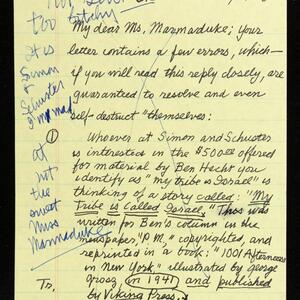 too
tetchy
It is
Simon
&
Schuster
My dear Ms. Marmaduke; Your
letter contains a few errors, which—
if you will read this reply closely, are
guaranteed to resolve and even
self-destruct "themselves:
①
Whoever at Simon and Schuster
is interested in the $500.00 offered
for material by Ben Hecht you
identify as "my tribe is Israel" is
thinking of a story called: "My
Tribe is Called Israel." This was
written for Ben's column in the
newspaper, "P.M." copyrighted, and
reprinted in a book: "1001 Afternoons
in New York." illustrated by George
Grosz, in 1941 and published
by Viking Press.
at
not
the
sweet
Miss
Marmaduke